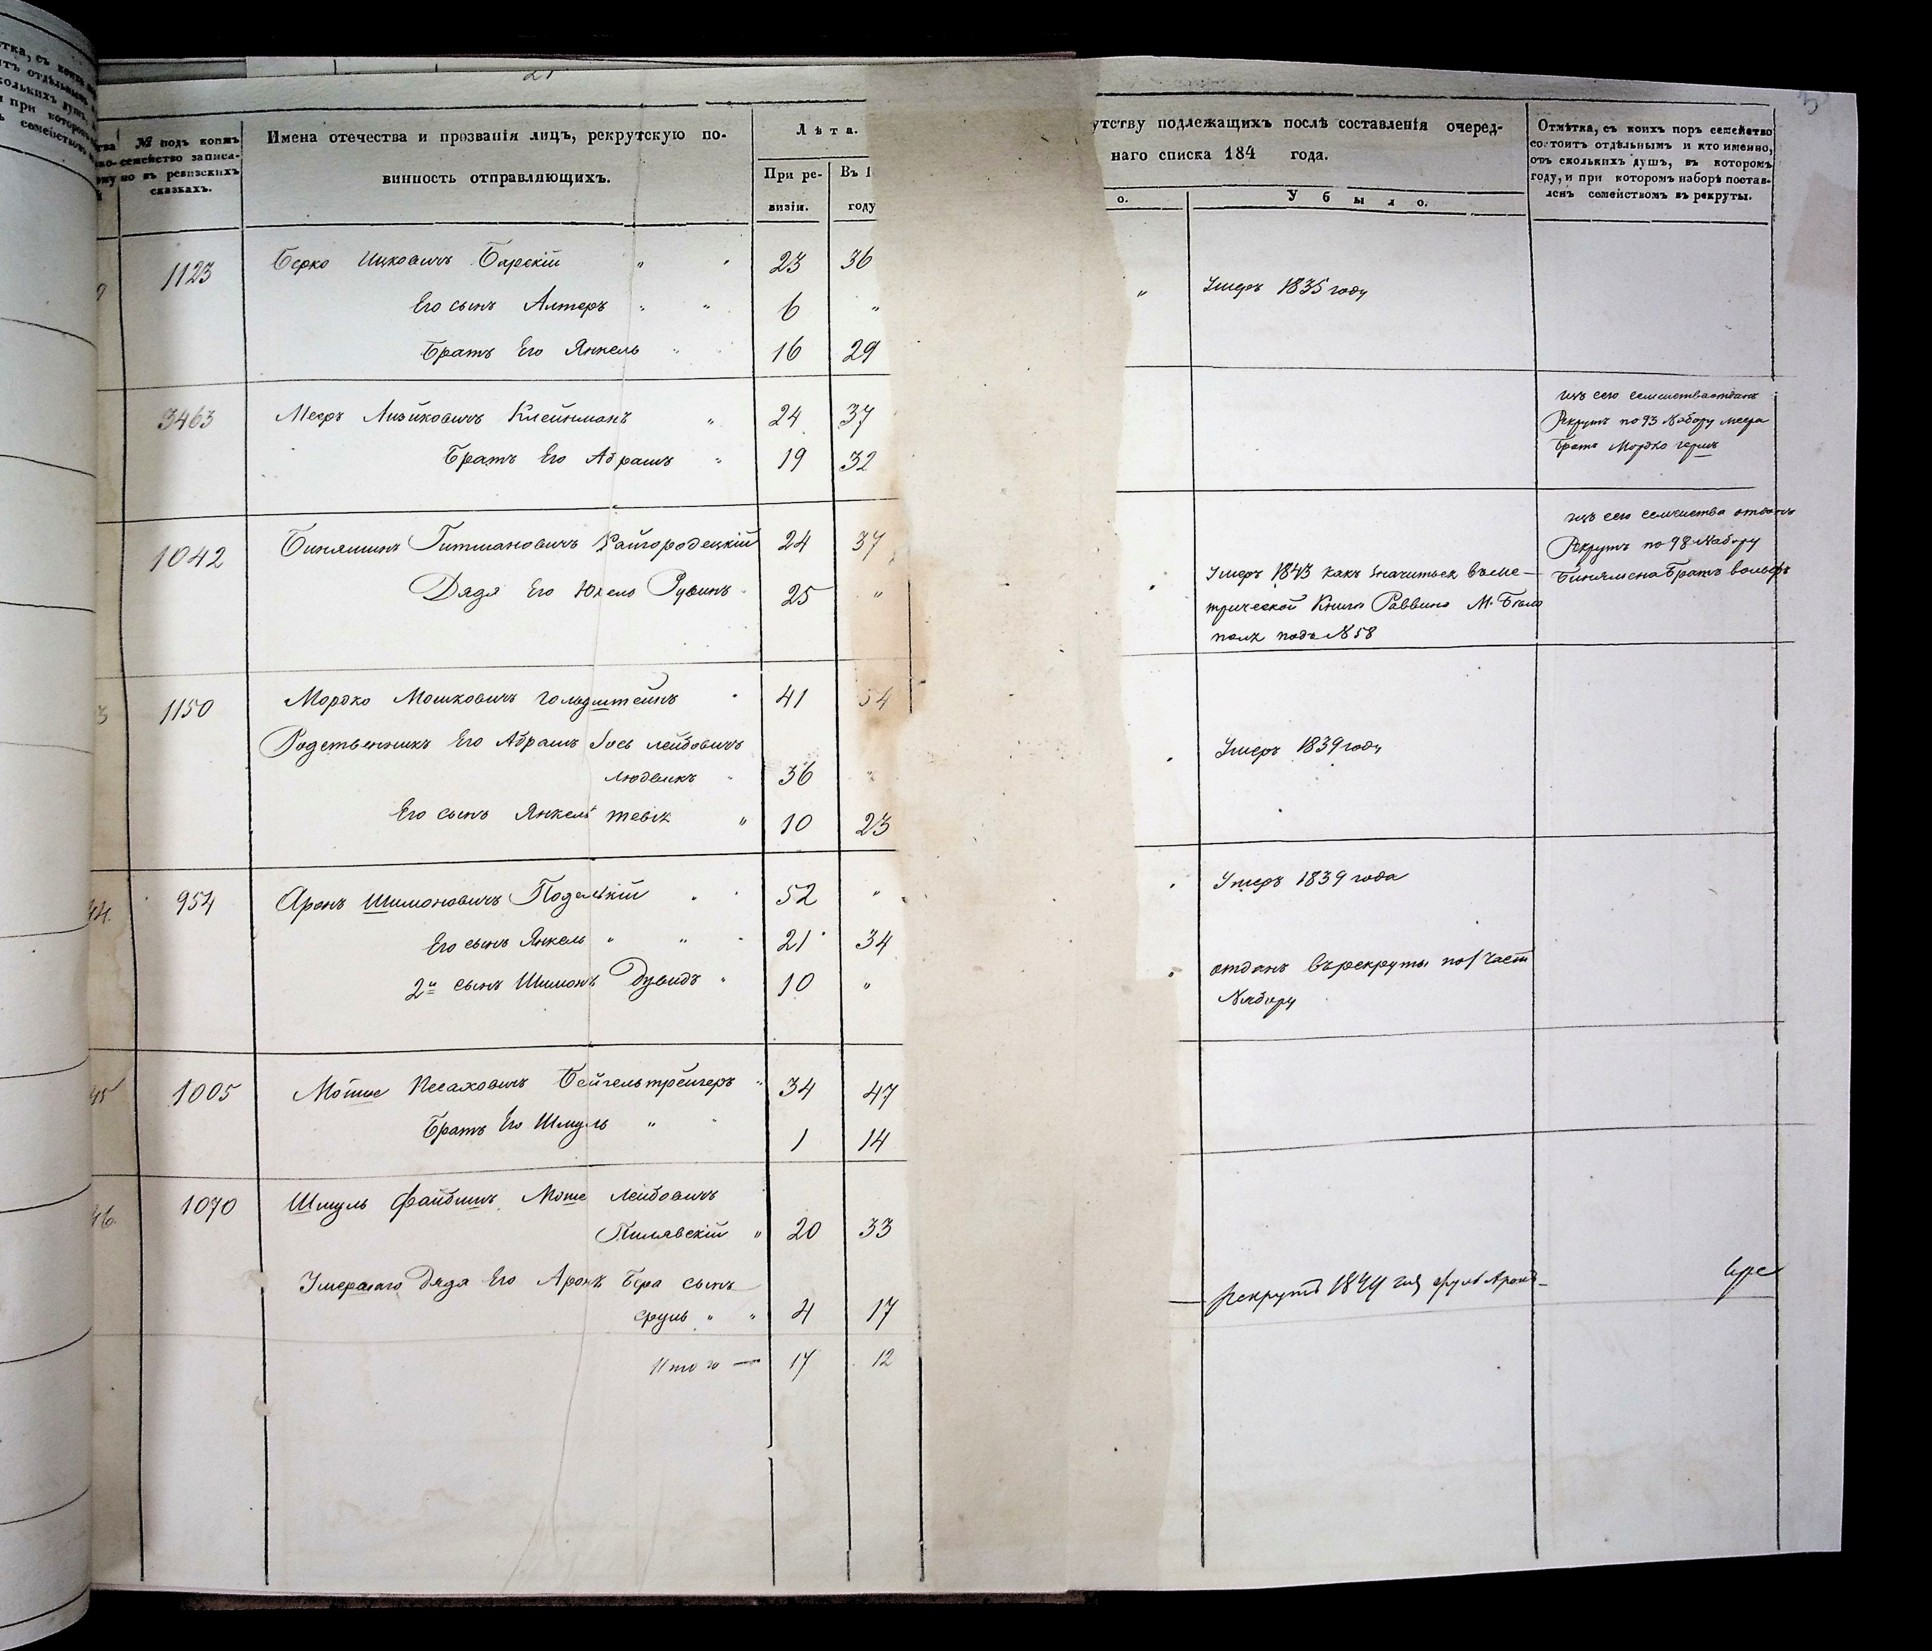 № подъ коимъ
семейство записа-
но въ ревизскихъ
сказкахъ.
Имена отечества и прозванія лицъ, рекрутскую по-
винность отправляющихъ.
Лѣта.
При ре-
визіи.
Въ 1
году
утству подлежащихъ послѣ составленія очеред-
наго списка 184 года.
о.
Убыло.
Отмѣтка, съ коихъ поръ семейство
состоитъ отдѣльнымъ и кто именно,
отъ сколькихъ душъ, въ которомъ
году, и при которомъ наборѣ постав-
ленъ семействомъ въ рекруты.
1123 Берко Ицковичъ Барскій " 23 36
Его сынъ Алтеръ " " 6 " " Умеръ 1835 году
Братъ Его Янкель " 16 29
3463 Мееръ Айзиковичъ Клейнманъ " 24 37
Братъ Его Абрамъ " 19 32
изъ сего семейства отданъ
Рекрутъ по 93 Набору меера
Братъ Мордко герш
1042 Биняминъ Гитмановичъ Райгородецкій 24 37
Дядя Его Юхель Рувинъ 25 "
Умеръ 1843 какъ значиться въ ме-
трической Книги Раввина М. Бѣло
поля подъ №58
изъ сего семейства отданъ
Рекрутъ по 98 Набору
Бинямена Братъ вольфъ
1150 Мордко Мошковичъ гольдштейнъ 41 54
Родственникъ Его Абрамъ Іось лейбовичъ
36 " Умеръ 1839 году
Его сынъ Янкель тевія " 10 23
44. 954 Аронъ Шимоновичъ Подольскій 52 " Умеръ 1839 года
Его сынъ Янкель " " 21 34
2й сынъ Шимонъ Дувидъ " 10 "
отданъ въ рекруты по 1 част
Набору
45 1005 Мошие Песаховичъ Бейгельтрейгеръ " 34 47
Братъ Его Шмуль " 1 14
46. 1070 Шмуль файбишъ Моше Лейбовичъ
Пилявскій " 20 33
Умершаго дядя Его Аронъ Бера сынъ
сруль " " 4 17
рекрутъ 1844 год сруль Арон
Итого — 17 12